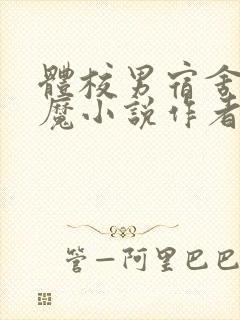 體校男宿舍
魔小說作者
管—阿里巴巴